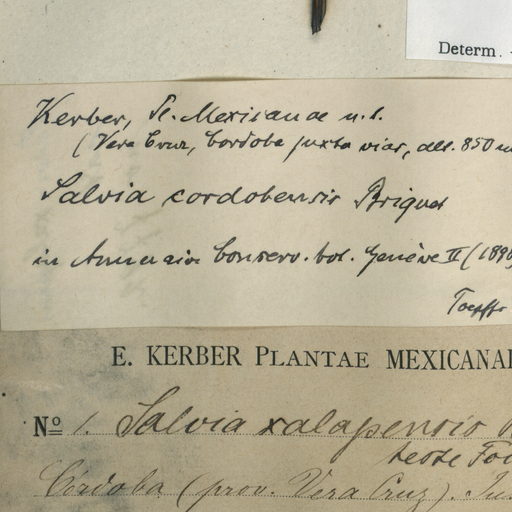 Determ.
Kerber, Pl. Mexicanae n. 1.
(Vera Cruz, Cordoba juxta vias, alt. 850 m
Salvia cordobensis Briquet
in Annuaire Conserv. bot. Genève II (1898
E. KERBER PLANTAE MEXICANA
Nº 1. Salvia xalapensis
teste
Córdoba (prov. Vera Cruz).